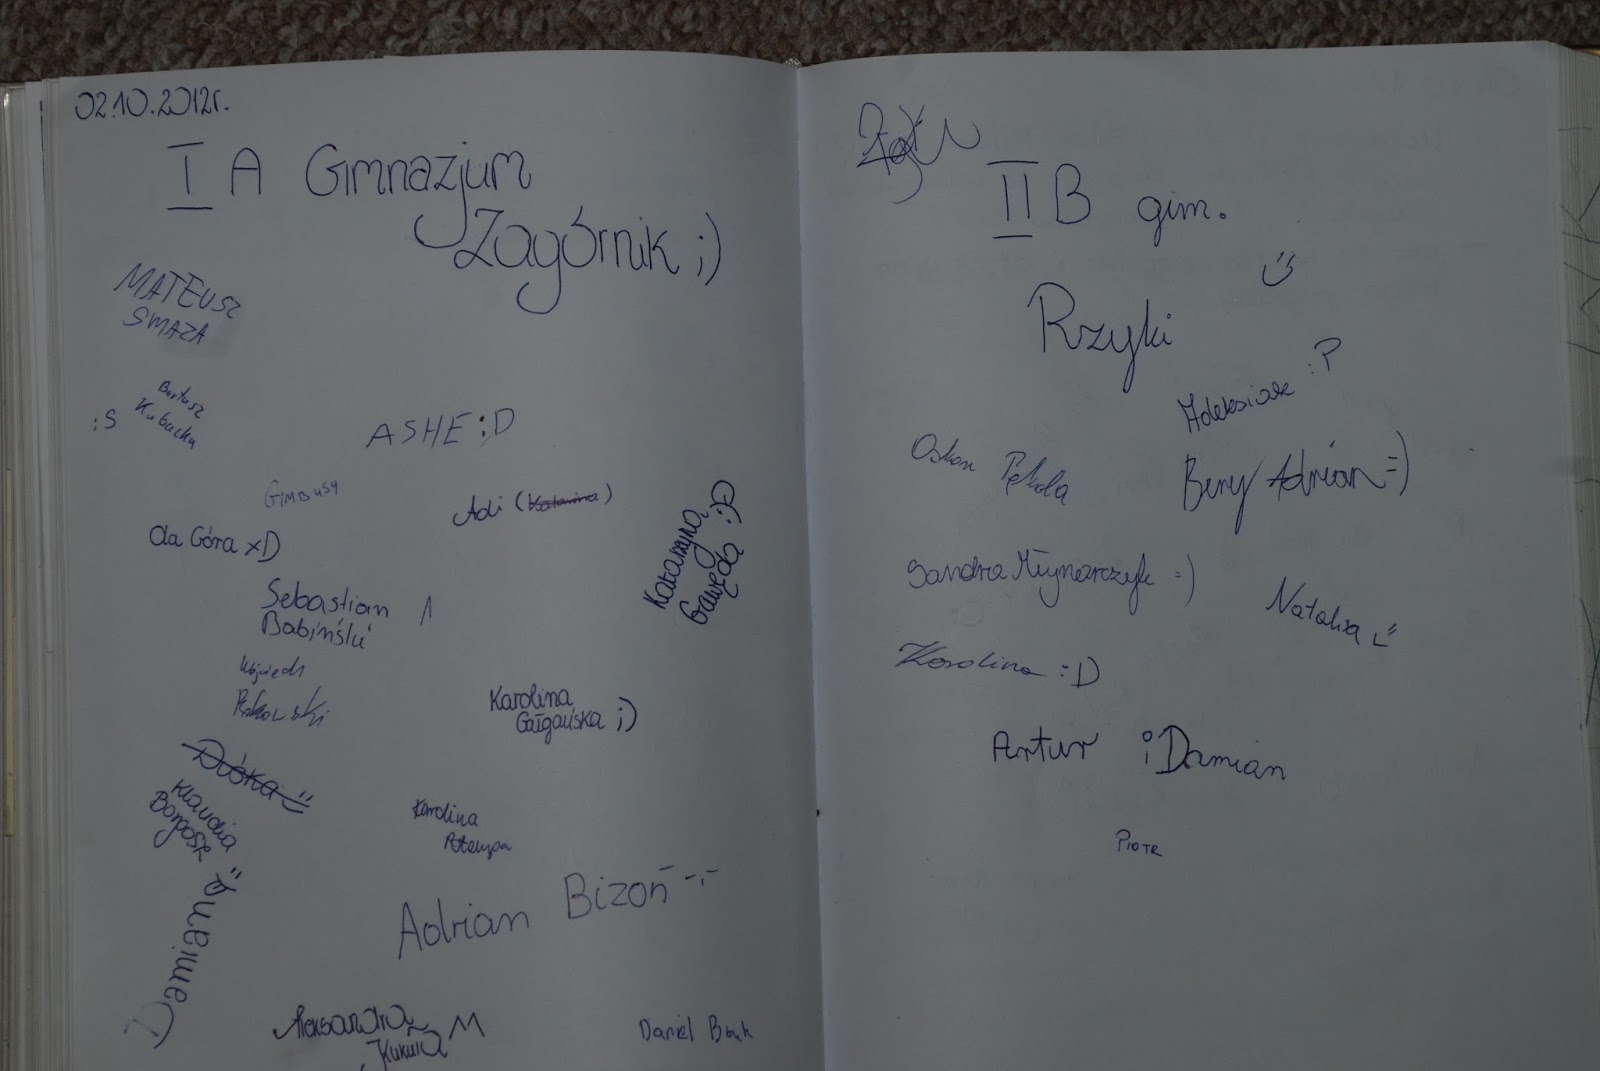 02.10.2012r.
I A Gimnazjum
Zagórnik ;)
MATEUSZ
SMAZA
Bartosz
:S
ASHE :D
GIMBUSY
Adi
da Góra xD
Katarzyna
Gawęda :)
Sebastian
Babiński
Wojciech
Karolina
Gałgańska ;)
Klaudia
Karolina
Potempa
Damian
Adrian Bizoń
Aleksandra
Kukuła
Daniel
II B gim.
Rzyki
:P
Oskar Pękala
Bery Adrian =)
Sandra Młynarczyk =)
Natalia
Karolina :D
Artur i Damian
PIOTR